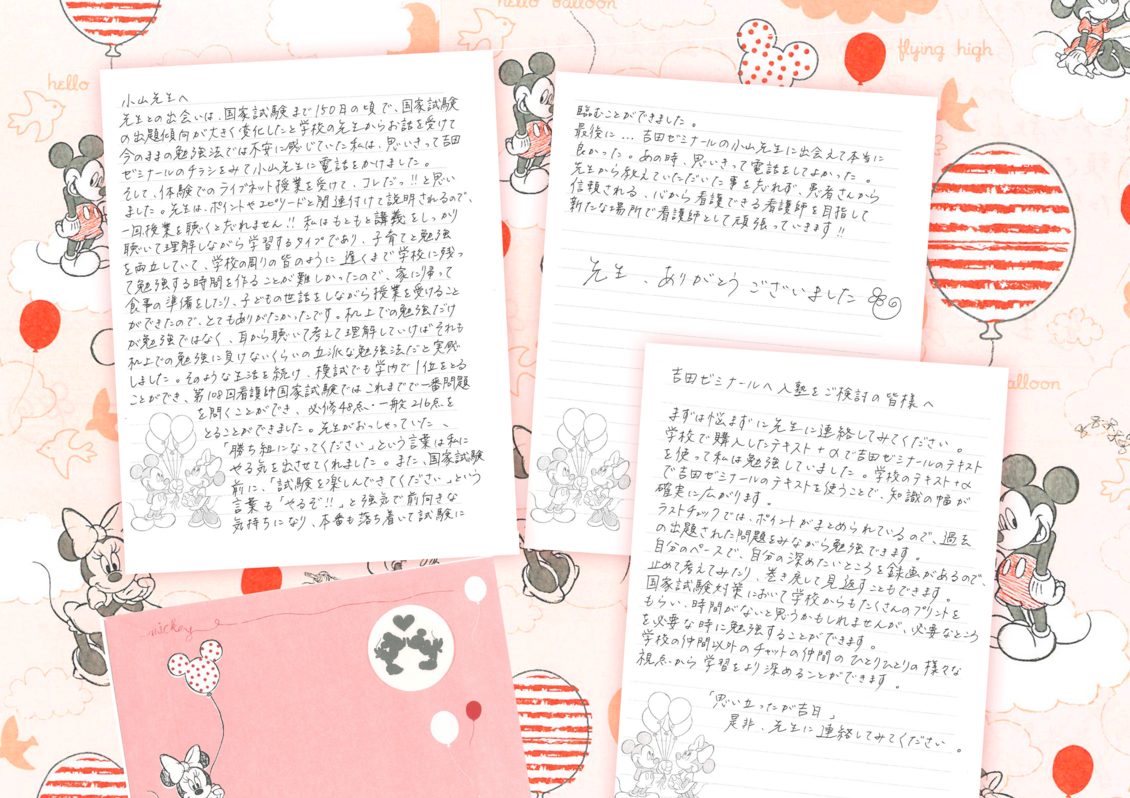 hello balloon
flying high
hello
小山先生へ
先生との出会いは、国家試験まで150日の頃で、国家試験
の出題傾向が大きく変化したと学校の先生からお話を受けて
今のままの勉強法では不安に感じていた私は、思いきって吉田
ゼミナールのチラシをみて小山先生に電話をかけました。
そして、体験でのライブネット授業を受けて、コレだっ!!と思い
ました。先生は、ポイントやエピソードと関連付けて説明されるので、
一回授業を聴くと忘れません!! 私はもともと講義をしっかり
聴いて理解しながら学習するタイプであり、子育てと勉強
を両立していて、学校の周りの皆のように遅くまで学校に残っ
て勉強する時間を作ることが難しかったので、家に帰って
食事の準備をしたり、子どもの世話をしながら授業を受けること
ができたので、とてもありがたかったです。机上での勉強だけ
が勉強ではなく、耳から聴いて考えて理解していけばそれも
机上での勉強に負けないくらいの立派な勉強法だと実感
しました。そのような生活を続け、模試でも学内で1位をとる
ことができ、第108回看護師国家試験ではこれまでで一番問題
を聞くことができ、必修48点・一般216点を
とることができました。先生がおっしゃっていた、
「勝ち組になってください」という言葉は私に
やる気を出させてくれました。また、国家試験
前に、「試験を楽しんできてください」という
言葉も「やるぞ!!」と強気で前向きな
気持ちになり、本番も落ち着いて試験に
臨むことができました。
最後に…吉田ゼミナールの小山先生に出会えて本当に
良かった。あの時、思いきって電話をしてよかった。
先生から教えていただいた事を忘れず、患者さんから
信頼される、心から看護できる看護師を目指して
新たな場所で看護師として頑張っていきます!!
先生、ありがとうございました
吉田ゼミナールへ入塾をご検討の皆様へ
まずは悩まずに先生に連絡してみてください。
学校で購入したテキスト+αで吉田ゼミナールのテキスト
を使って私は勉強していました。学校のテキスト+α
で吉田ゼミナールのテキストを使うことで、知識の幅が
確実に広がります。
ラストチェックでは、ポイントがまとめられているので、過去
の出題された問題をみながら勉強できます。
自分のペースで、自分の深めたいところを録画があるので、
止めて考えてみたり、巻き戻して見返すこともできます。
国家試験対策において学校からもたくさんのプリントを
もらい、時間がないと思うかもしれませんが、必要なところ
を必要な時に勉強することができます。
学校の仲間以外のチャットの仲間のひとりひとりの様々な
視点から学習をより深めることができます。
「思い立ったが吉日」
是非、先生に連絡してみてください。
balloon
mickey